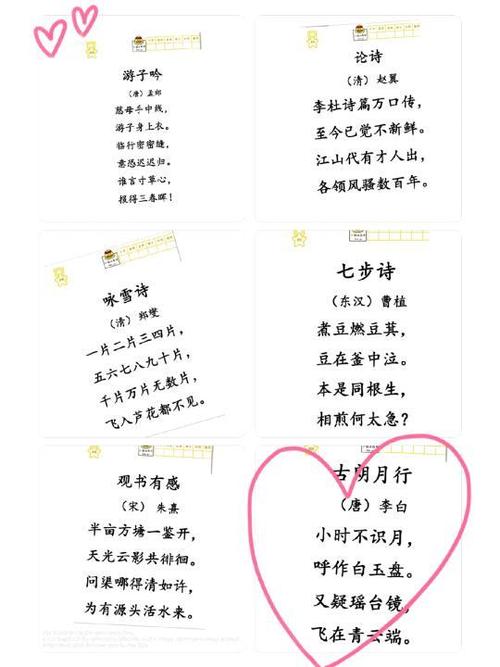 游子吟
（唐）孟郊
慈母手中线，
游子身上衣。
临行密密缝，
意恐迟迟归。
谁言寸草心，
报得三春晖！
论诗
（清）赵翼
李杜诗篇万口传，
至今已觉不新鲜。
江山代有才人出，
各领风骚数百年。
咏雪诗
（清）郑燮
一片二片三四片，
五六七八九十片，
千片万片无数片，
飞入芦花都不见。
七步诗
（东汉）曹植
煮豆燃豆萁，
豆在釜中泣。
本是同根生，
相煎何太急？
观书有感
（宋）朱熹
半亩方塘一鉴开，
天光云影共徘徊。
问渠哪得清如许，
为有源头活水来。
古朗月行
（唐）李白
小时不识月，
呼作白玉盘。
又疑瑶台镜，
飞在青云端。